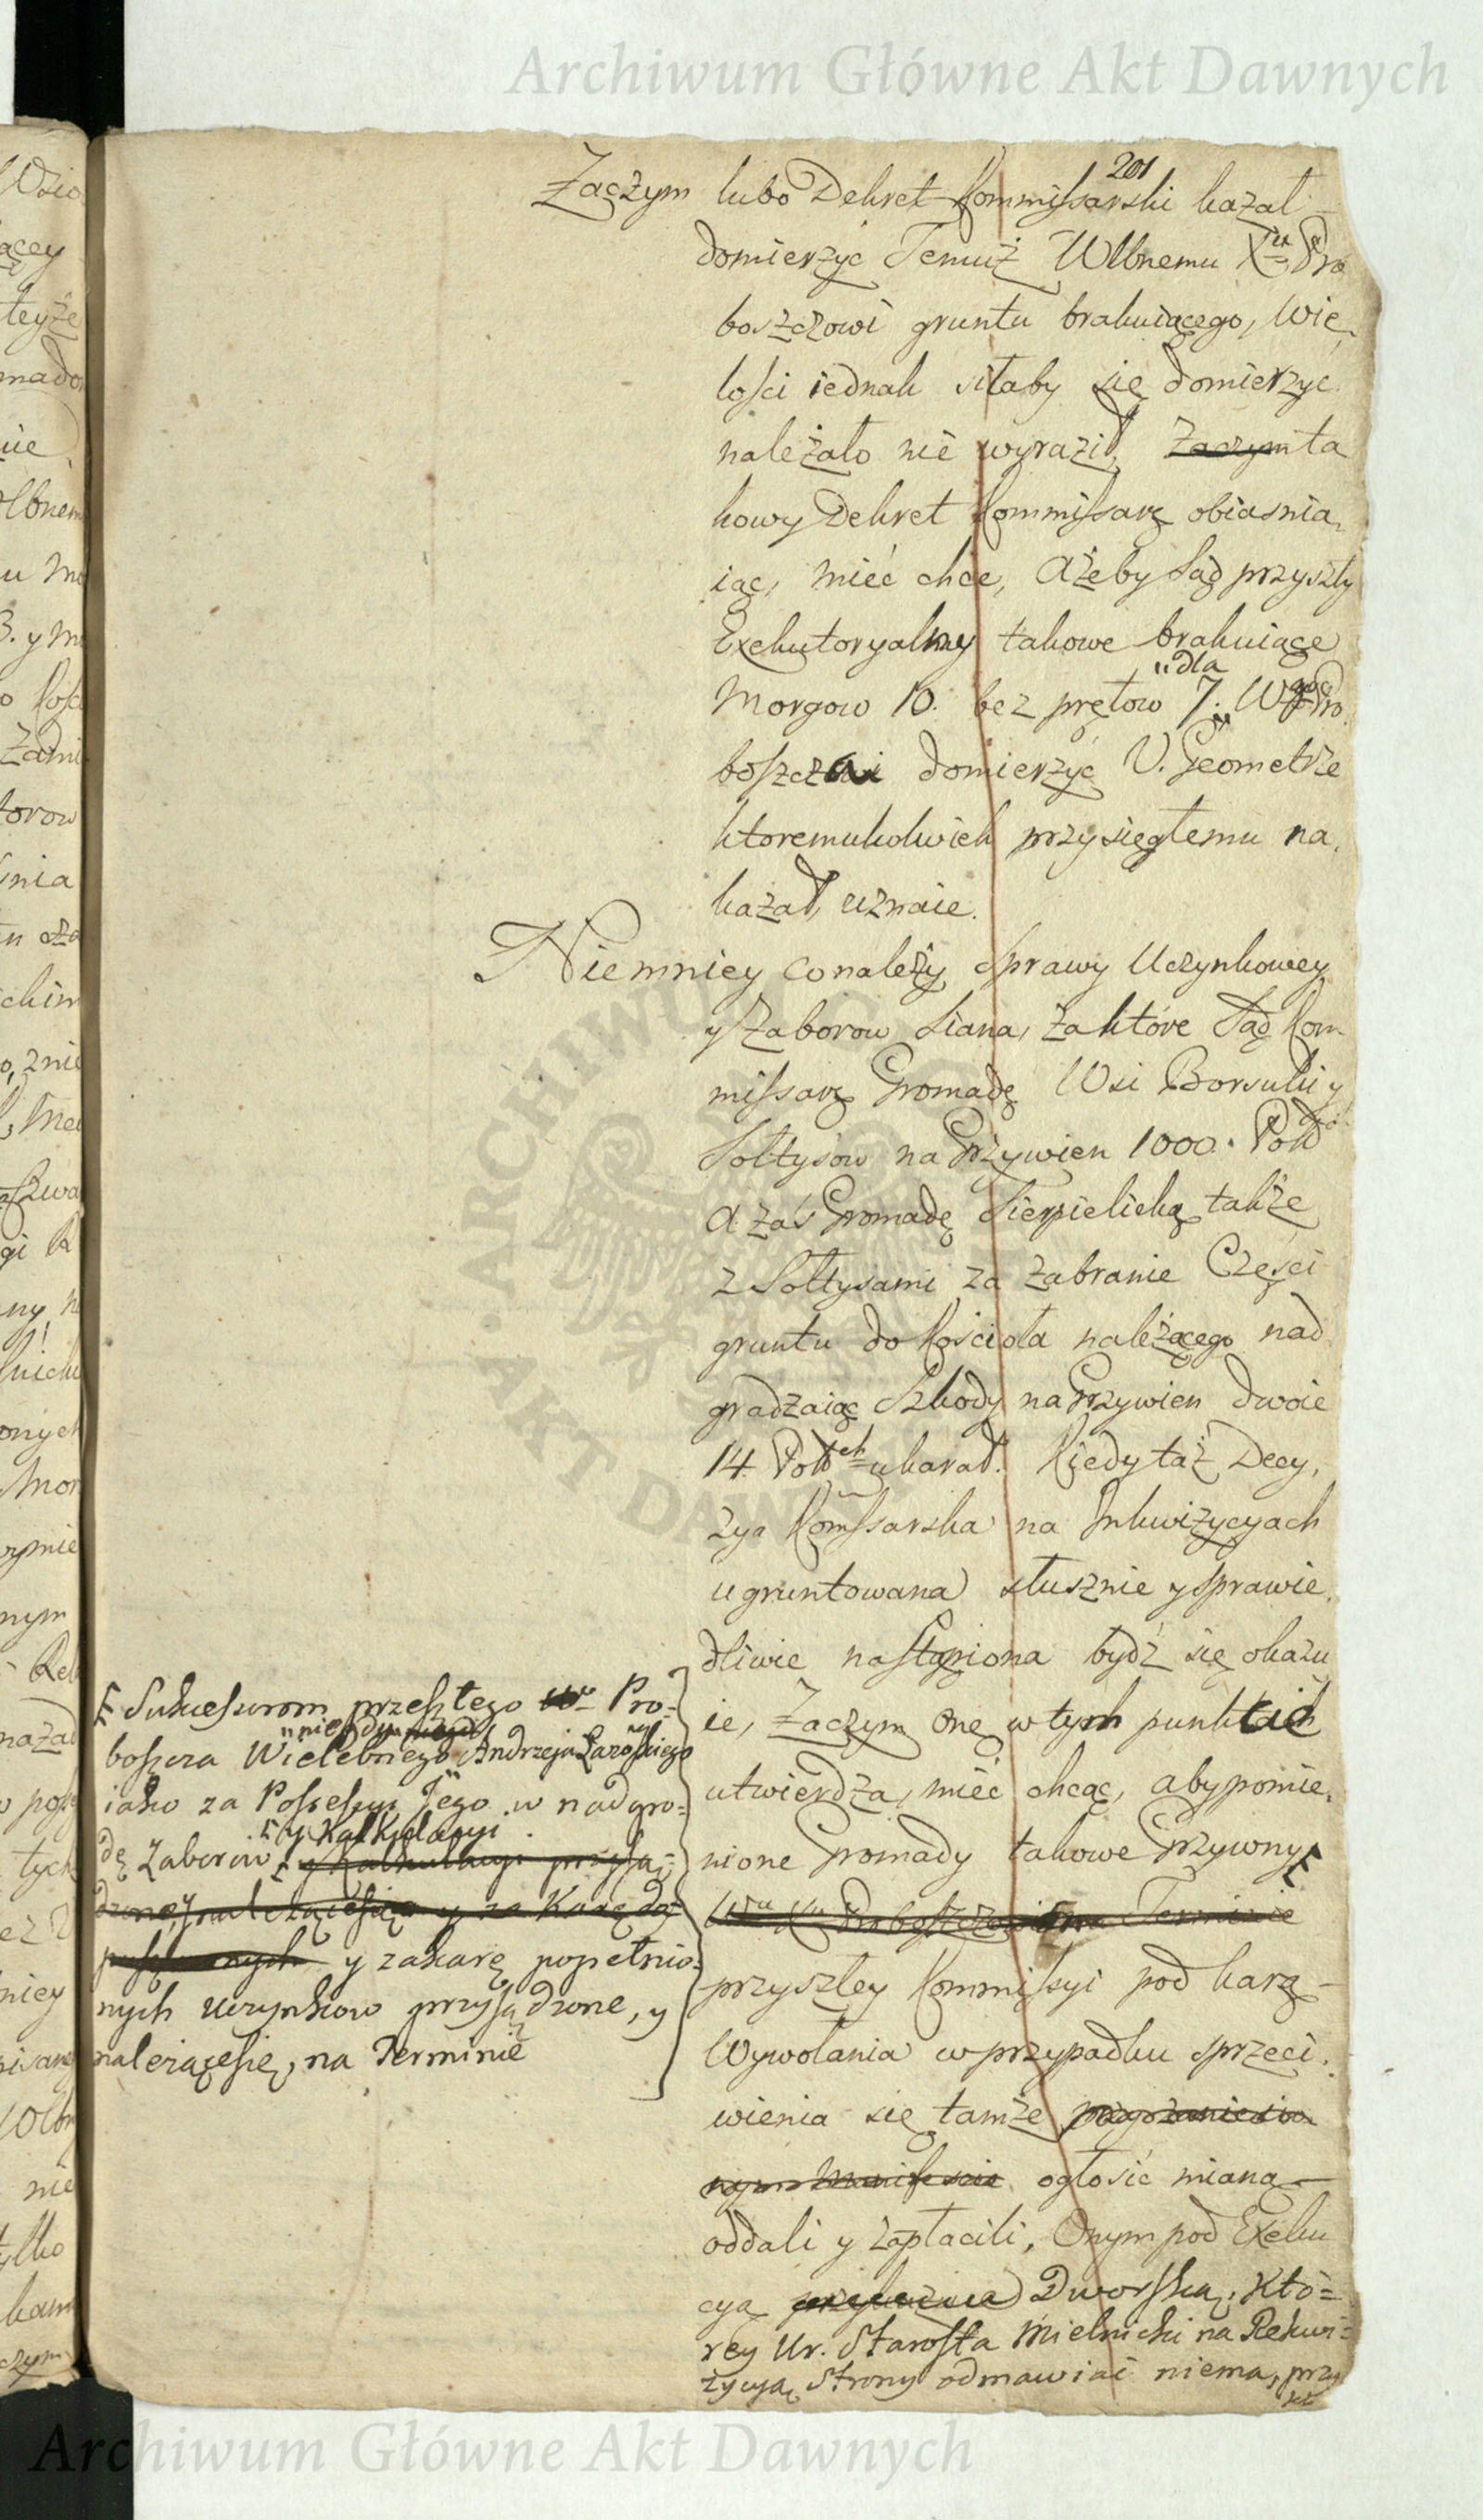 Archiwum Główne Akt Dawnych
201
Zaczym lubo Dekret Kommissarski kazał
domierzyć Temuż Wlbnemu Xdu Pro
boszczowi gruntu brakuiącego, Wie,
lości iednak siłaby się domierzyć
należało nie wyraził, Zaczym ta
kowy Dekret Kommissarz obiasnia,
iąc, mieć chce, Ażeby Sąd przyszły
Exekutoryalny takowe brakuiące
"dla
Morgow 10. bez prętow 7. Wgo Pro
boszcza domierzyć U. Geometrze
ktoremukolwiek przysięgłemu na,
kazał, uznaie.
Niemniey co należy Sprawy Uczynkowey
y Zaborow Siana, za które Sąd Kom
missarz Gromadę Wsi Borsuki y
Sołtysów na Grzywien 1000. Polb
A zaś Gromadę Sierpielicką także
z Sołtysami za zabranie Części
gruntu do Kościoła należącego nad
gradzaiąc Szkody na Grzywien dwoie
14 Polbch ukarał. Kiedy taż Decy,
zya Kommssarska na Inkwizycyach
ugruntowana słusznie y sprawie,
dliwie nastąpiona bydź się okazu
ie, Zaczym onę w tych punktach
utwierdza, mieć chcąc, aby pomie,
nione Gromady takowe Grzywny
Wmu Xdu Proboszczowi na Terminie
przyszley Kommissyi pod karą
Wywołania w przypadku sprzeci,
wienia się tamże po zaniesio
nym Manifescie ogłosić mianą
oddali y zapłacili, Onym pod Exeku
cyą Dworską, Któ=
rey Ur. Starosta Mielnicki na Rekwi=
zycyą Strony odmawiać niema, przy
F Sukcessorom przeszłego Pro=
"niegdy
boszcza Wielebnego Andrzeja Łazowskiego
iako za Possessyi Jego w nadgro=
y Kalkulacyi
dę Zaborow y Kalkulacyi przysą=
dzone, y należącesię y za Karę do
y zakarę popełnio=
nych uczynkow przysądzone, y
należącesię, na Terminie
ARCHIWUM
AKT DAW
Archiwum Główne Akt Dawnych